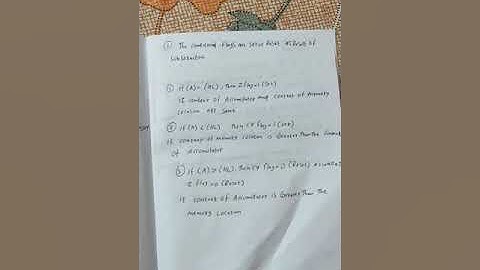 ① The conditional Flags are set or Reset as Result of
Subtraction
① if (A) = (HL), then Z Flag = 1 (Set)
if content of Accumulator and content of memory
Location are same
② if (A) < (HL) then CY Flag = 1 (Set)
if contents of memory Location is Greater than the
of Accumulator
③ if (A) > (HL) then CY Flag = 0 (Reset)
Z Flag = 0 (Reset)
if contents of Accumulator is Greater than the
memory Location